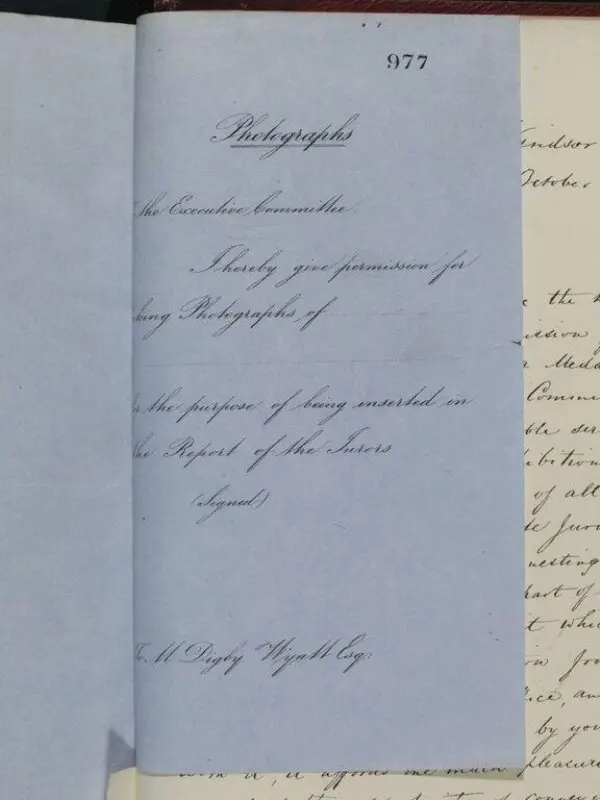 977
Photographs
the Executive Committee.
I hereby give permission for
king Photographs of
the purpose of being inserted in
he Report of the Jurors
(Signed)
To M Digby Wyatt Esq:
indsor
October
the
ission
Meda
Commi
ble ser
ibition
of all
te Juri
uesting
part of
t whic
on for
ice, an
by you
pleasure
with it, it affords me much